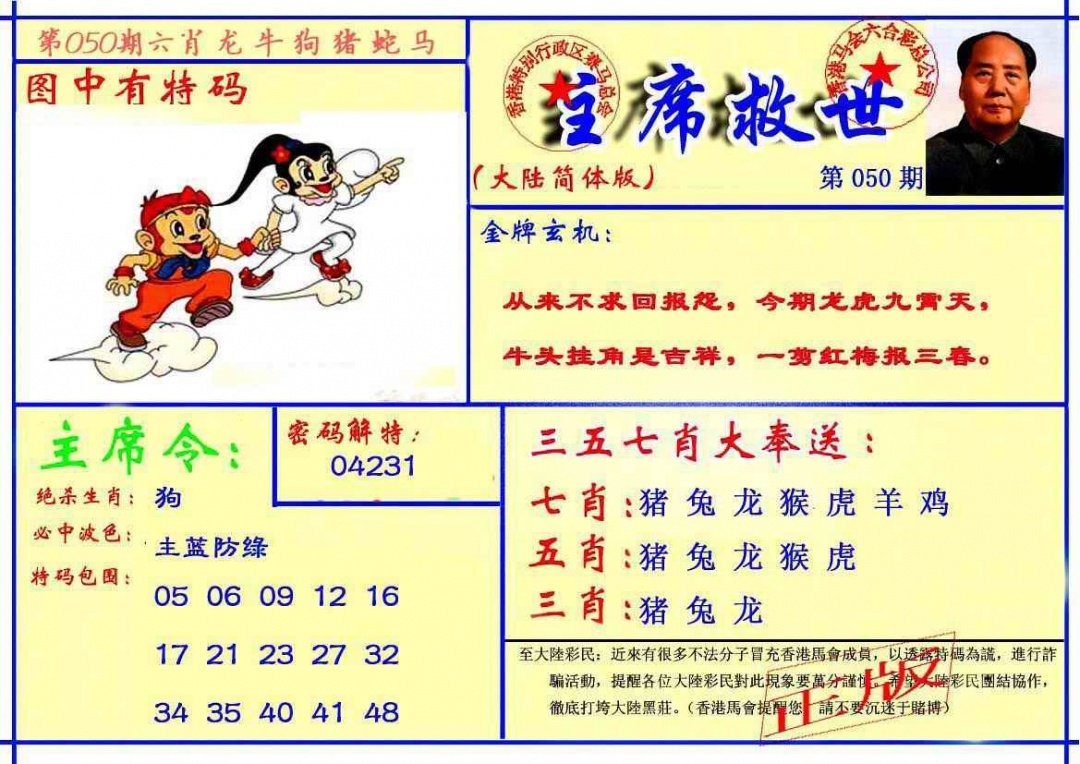 第050期六肖龙牛狗猪蛇马
图中有特码
香港特别行政区赛马总会
香港马会六合彩总公司
主席救世
(大陆简体版)
第 050 期
金牌玄机:
从来不求回报怨，今期龙虎九霄天，
牛头挂角是吉祥，一剪红梅报三春。
主席令:
绝杀生肖: 狗
必中波色: 主蓝防绿
特码包围:
05 06 09 12 16
17 21 23 27 32
34 35 40 41 48
密码解特:
04231
三五七肖大奉送:
七肖:猪兔龙猴虎羊鸡
五肖:猪兔龙猴虎
三肖:猪兔龙
至大陸彩民：近來有很多不法分子冒充香港馬會成員，以透露特碼為謊，進行詐
騙活動，提醒各位大陸彩民對此現象要萬分謹慎。希望大陸彩民團結協作，
徹底打垮大陸黑莊。（香港馬會提醒您 請不要沉迷于賭博）
正版